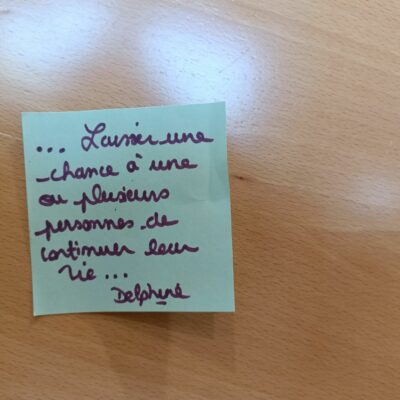 ... Laisser une
chance à une
ou plusieurs
personnes de
continuer leur
vie ...
Delphine